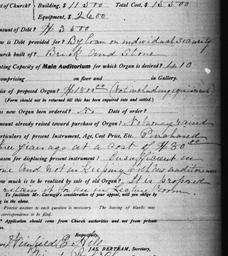 of Church? Building, $11500 Total Cost, $16500
Equipment, $2600
Amount of Debt? $3500
is Debt provided for? By loan on individual security
Church built of? Brick and Stone
Seating Capacity of Main Auditorium for which Organ is desired? 410
comprising on floor and in Gallery.
Price of proposed Organ? $1800.00 (Not including equipment)
(Form should not be returned till this has been enquired into and settled.)
new Organ been ordered? No Date of order?
Amount already raised toward purchase of Organ? No money raised
Particulars of present Instrument, Age, Cost Price, Etc. Purchased
three years ago at a cost of $30.00
Reason for displacing present instrument? Insufficient in
tone and not in keeping with new auditorium
How much is to be realized by sale of old Organ? It is proposed
to retain it for use in Lecture Room
To facilitate Mr. Carnegie's consideration of your appeal, will you oblige by
Precise answer to each question is necessary. The leaving of blanks may
correspondence to be filed.
Application should come from Church authorities and not from private
Respectfully,
JAS. BERTRAM, Secretary,